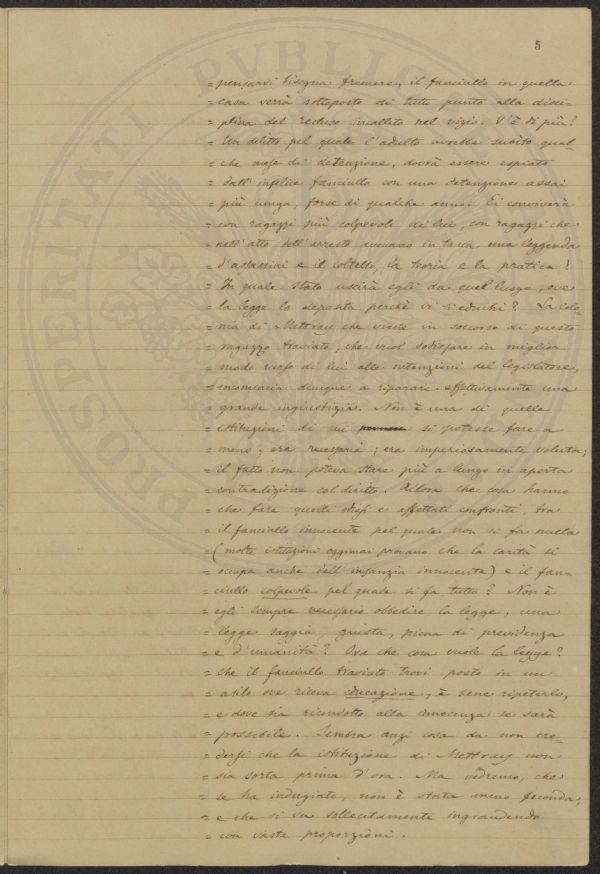 PROSPERITATI PVBLIC
5
= pensarvi bisogna fremere, il fanciullo in quella
= casa verrà sottoposto di tutto punto alla disci-
= plina del recluso incallito nel vizio. V'è di più!
= Un delitto pel quale l'adulto avrebbe subito qual-
= che mese di detenzione, dovrà essere espiato
= dall'infelice fanciullo con una detenzione assai
= più lunga, forse di qualche anno. Ei conviverà
= con ragazzi più colpevoli di lui, con ragazzi che
= nell'atto dell'arresto avevano in tasca, una leggenda
= d'assassini e il coltello, la teoria e la pratica!
= In quale stato uscirà egli da quel luogo, ove
= la legge lo deposita perchè vi si educhi? La Colo-
= nia di Mettray che viene in soccorso di questo
= ragazzo traviato, che vuol sodisfare in miglior
= modo verso di lui alle intenzioni del legislatore,
= incomincia dunque a riparare effettivamente una
= grande ingiustizia. Non è una di quelle
= istituzioni di cui si potesse fare a
= meno; era necessaria; era imperiosamente voluta;
= il fatto non poteva stare più a lungo in aperta
= contradizione col diritto. Allora che cosa hanno
= che fare questi e affettati confronti, tra
= il fanciullo innocente pel quale non si fa nulla
= (molte istituzioni oggimai provano che la carità si
= occupa anche dell'infanzia innocente) e il fan-
= ciullo colpevole pel quale si fa tutto? Non è
= egli sempre necessario obbedire la legge, una
= legge saggia, giusta, piena di previdenza
= e d'umanità? Ora che cosa vuole la legge?
= Che il fanciullo traviato trovi posto in un
= asilo ove riceva educazione, è bene ripeterlo,
= e dove sia ricondotto alla innocenza se sarà
= possibile. Sembra anzi cosa da non cre-
= dersi che la istituzione di Mettray non
= sia sorta prima d'ora. Ma vedremo, che
= se ha indugiato, non è stata meno feconda,
= e che si va sollecitamente ingrandendo
= con vaste proporzioni.